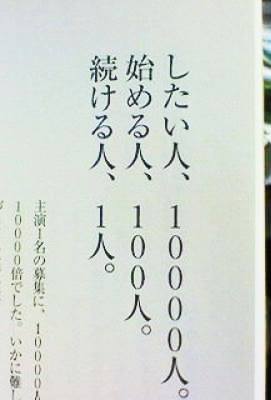 したい人、10000人。
始める人、100人。
続ける人、1人。
主演1名の募集に、10000人
10000倍でした。いかに難し